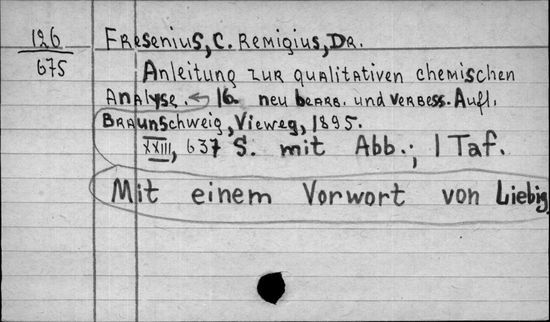 126
675
Fresenius, C. Remigius, Dr.
Anleitung zur qualitativen chemischen
Analyse. 16. neu bearb. und verbess. Aufl.
Braunschweig, Vieweg, 1895.
XXIII, 637 S. mit Abb.; 1 Taf.
Mit einem Vorwort von Liebig